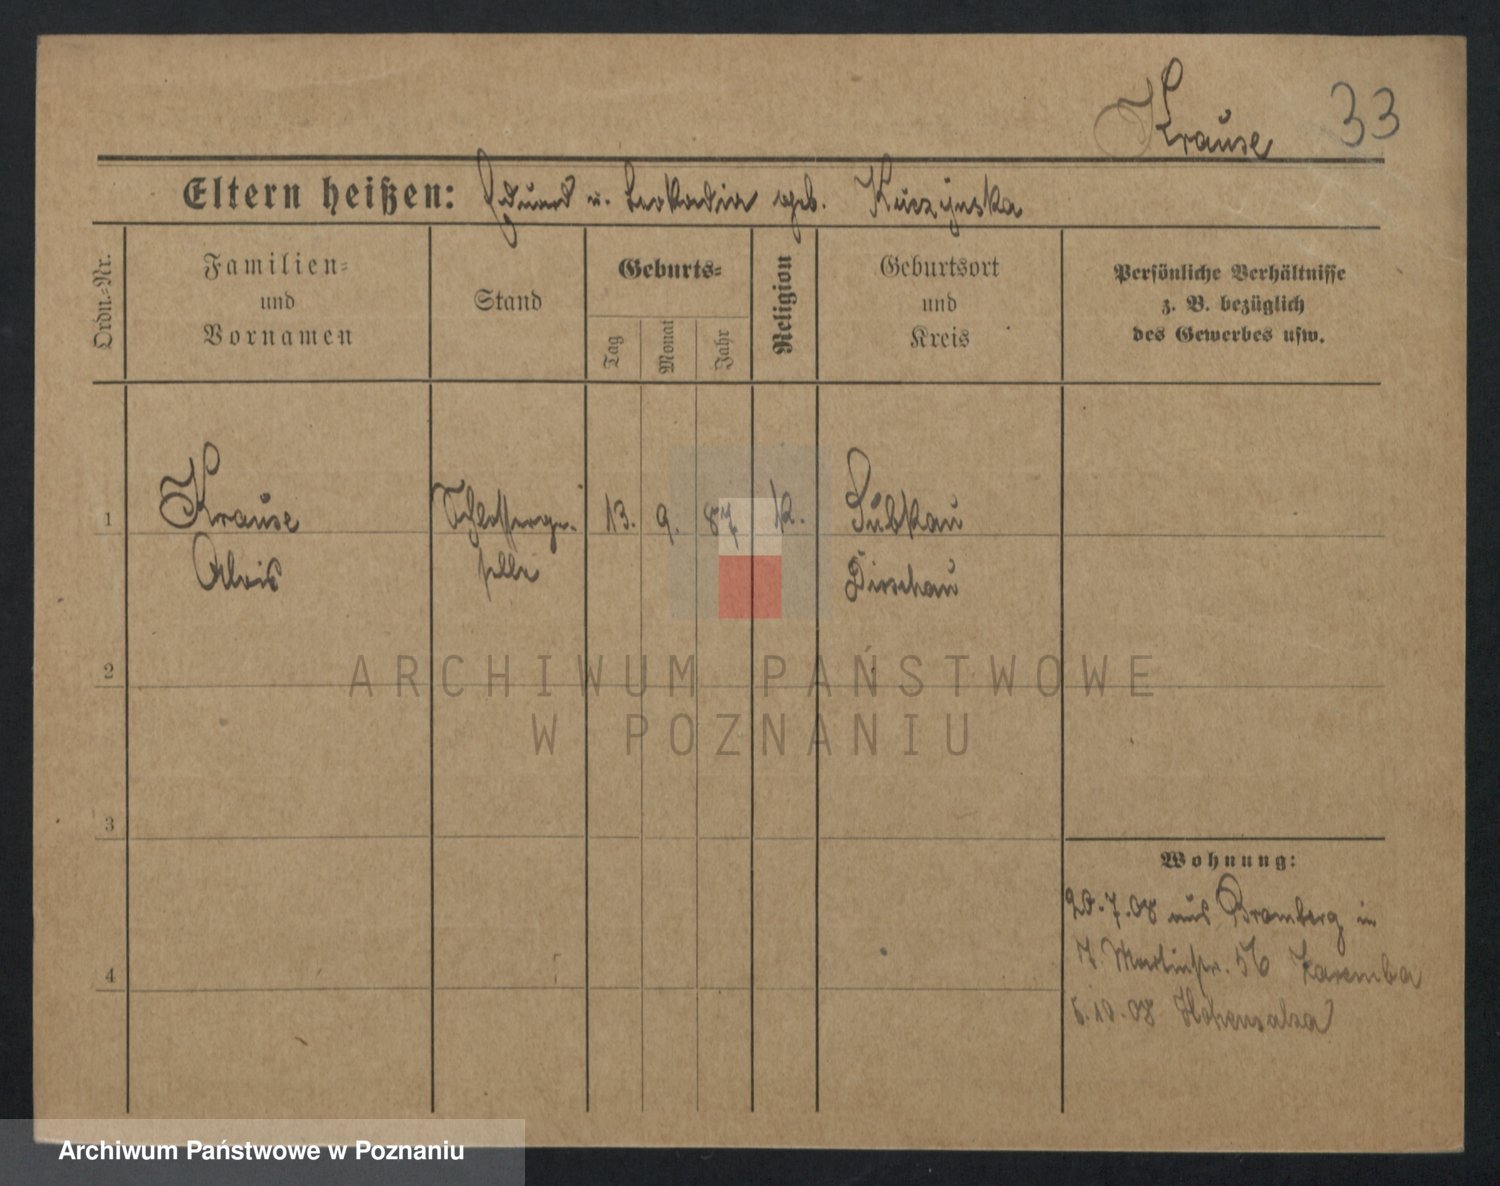 Krause 33
Eltern heißen: Eduard u. Leokadia geb. Kuczynska
Ordn.-Nr.
Familien-
und
Vornamen
Stand
Geburts-
Tag
Monat
Jahr
Religion
Geburtsort
und
Kreis
Persönliche Verhältnisse
z. B. bezüglich
des Gewerbes usw.
1 Krause Schlosserge- 13. 9. 87 k. Subkau
Alois selle Dirschau
2
3
4
Wohnung:
20.7.08 aus Bromberg in
7. Martinstr. 56 Zaremba
6.10.08 Hohensalza
ARCHIWUM PAŃSTWOWE
W POZNANIU
Archiwum Państwowe w Poznaniu